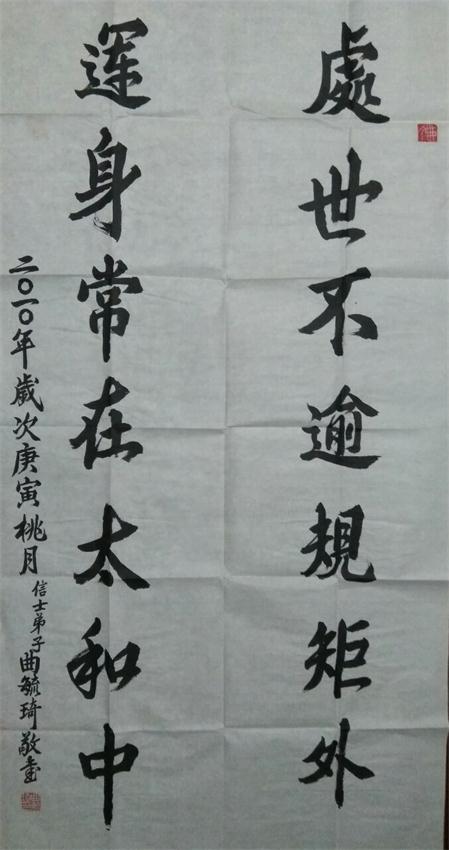 處世不逾規矩外
運身常在太和中
二〇一〇年歲次庚寅桃月信士弟子曲毓琦敬書